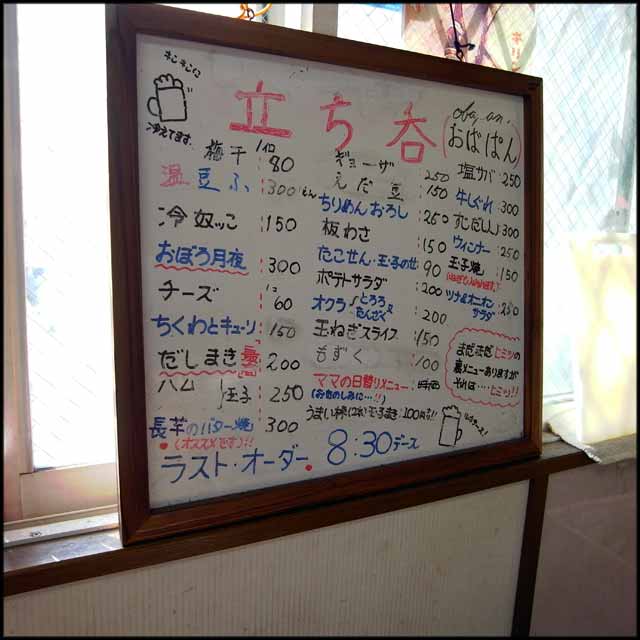 キンキンに
冷えてます.
立ち呑
おばぱん
梅干 1コ 80
温豆ふ 300
冷奴っこ 150
おぼろ月夜 300
チーズ 60
ちくわとキューリ 150
だしまき 200
ハム 玉子 250
長芋のバター焼 300
(オススメです)!!
ラスト・オーダー 8:30デース
ギョーザ 250
えだ豆 150
ちりめんおろし 250
板わさ 150
たこせん・玉子のせ 90
ポテトサラダ 200
オクラ とろろ たんざく 200
玉ねぎスライス 150
もずく 100
ママの日替りメニュー 時価
(お気のしみに…!!)
うまい棒(2本)玉子まき:100円!!
塩サバ 250
牛しぐれ 300
すじだし 300
ウィンナー 250
玉子焼 150
ツナ&オニオン サラダ 250
まだまだヒミツの
裏メニューありますが
それは‥‥ヒミツ!!